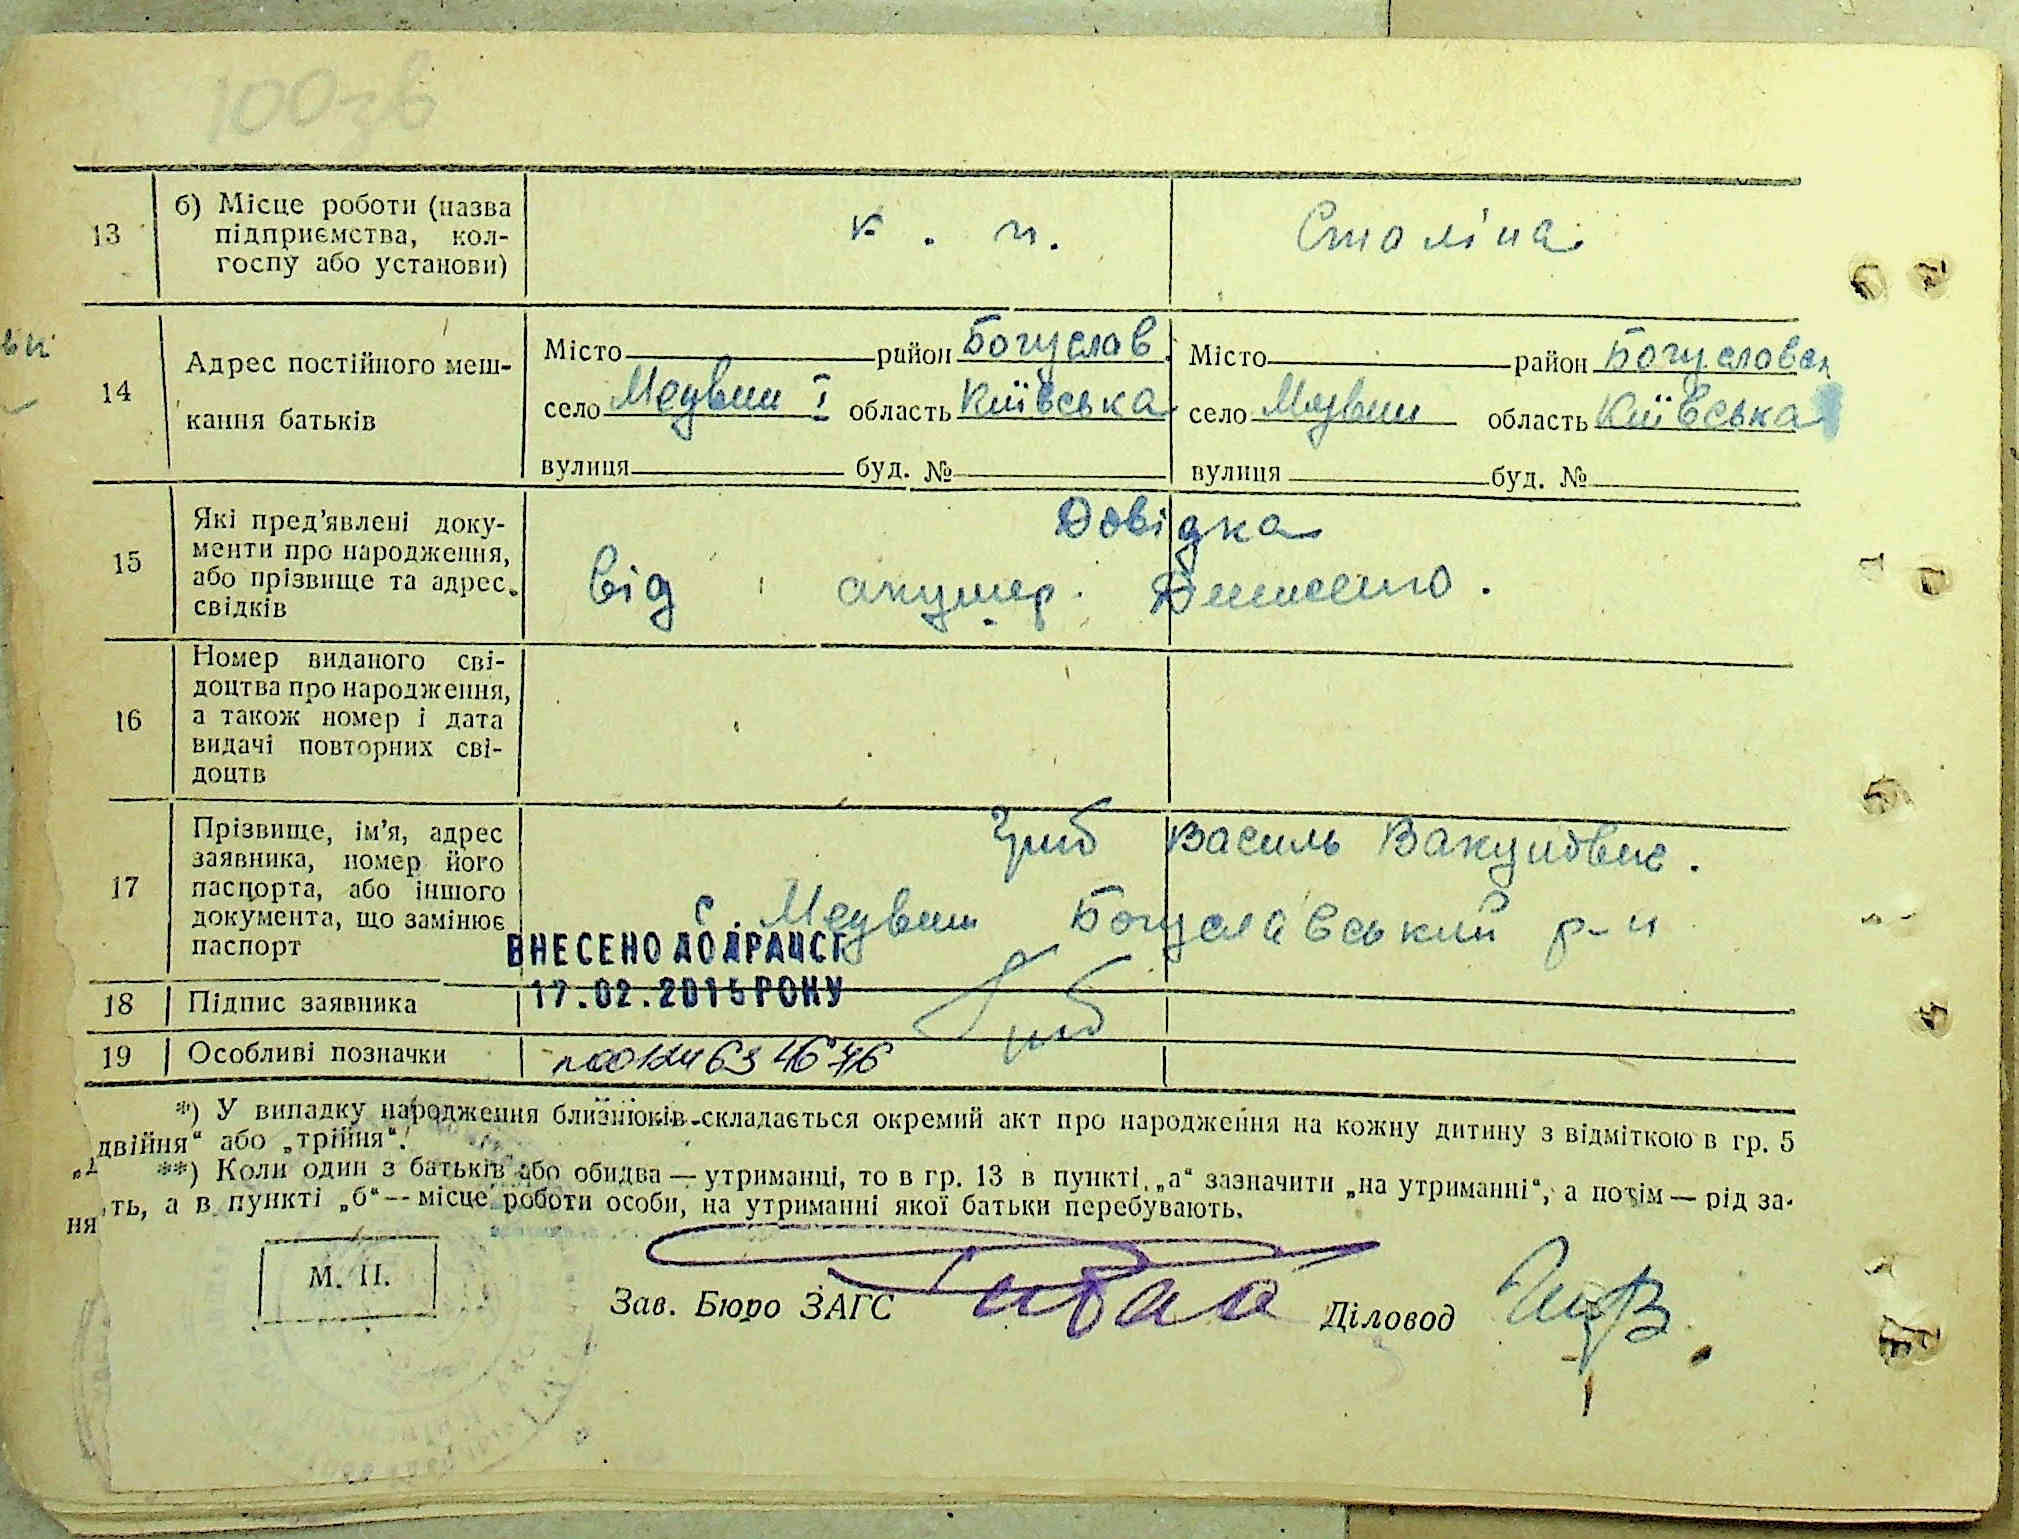 100зв
13
б) Місце роботи (назва
підприємства, кол-
госпу або установи)
к. п. Сталіна
14
Адрес постійного меш-
кання батьків
Місто район Богуслав
село Медвин І область Київська
вулиця буд. №
Місто район Богуславськ
село Медвин область Київська
вулиця буд. №
15
Які пред'явлені доку-
менти про народження,
або прізвище та адрес.
свідків
Довідка
від акушер.
16
Номер виданого сві-
доцтва про народження,
а також номер і дата
видачі повторних сві-
доцтв
17
Прізвище, ім'я, адрес
заявника, номер його
паспорта, або іншого
документа, що замінює
паспорт
Гриб Василь
с. Медвин Богуславський р-н
ВНЕСЕНО ДО ДРАЦСГ
17.02.2015 РОКУ
18
Підпис заявника
Гриб
19
Особливі позначки
*) У випадку народження близнюків складається окремий акт про народження на кожну дитину з відміткою в гр. 5
двійня" або „трійня".
**) Коли один з батьків або обидва — утриманці, то в гр. 13 в пункті „а" зазначити „на утриманні", а потім — рід за-
ня ть, а в пункті „б" — місце роботи особи, на утриманні якої батьки перебувають.
М. П.
Зав. Бюро ЗАГС
Діловод